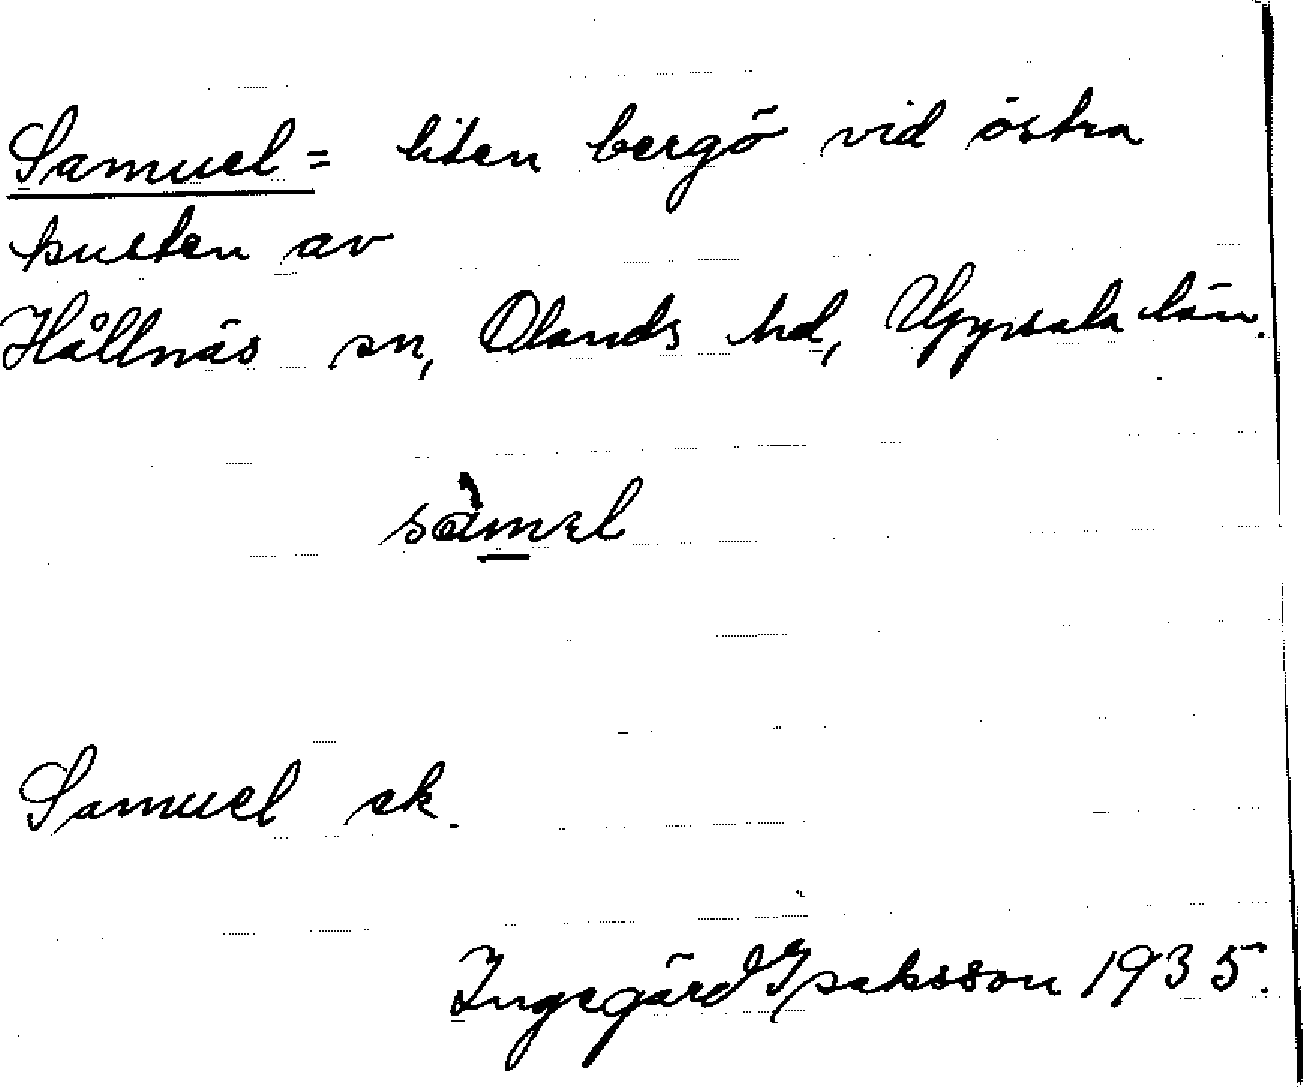 Samuel = liten bergö vid östra
kusten av
Hållnäs sn, Olands hd, Uppsala län.
sàmel
Samuel ek.
Ingegärd Isaksson 1935.